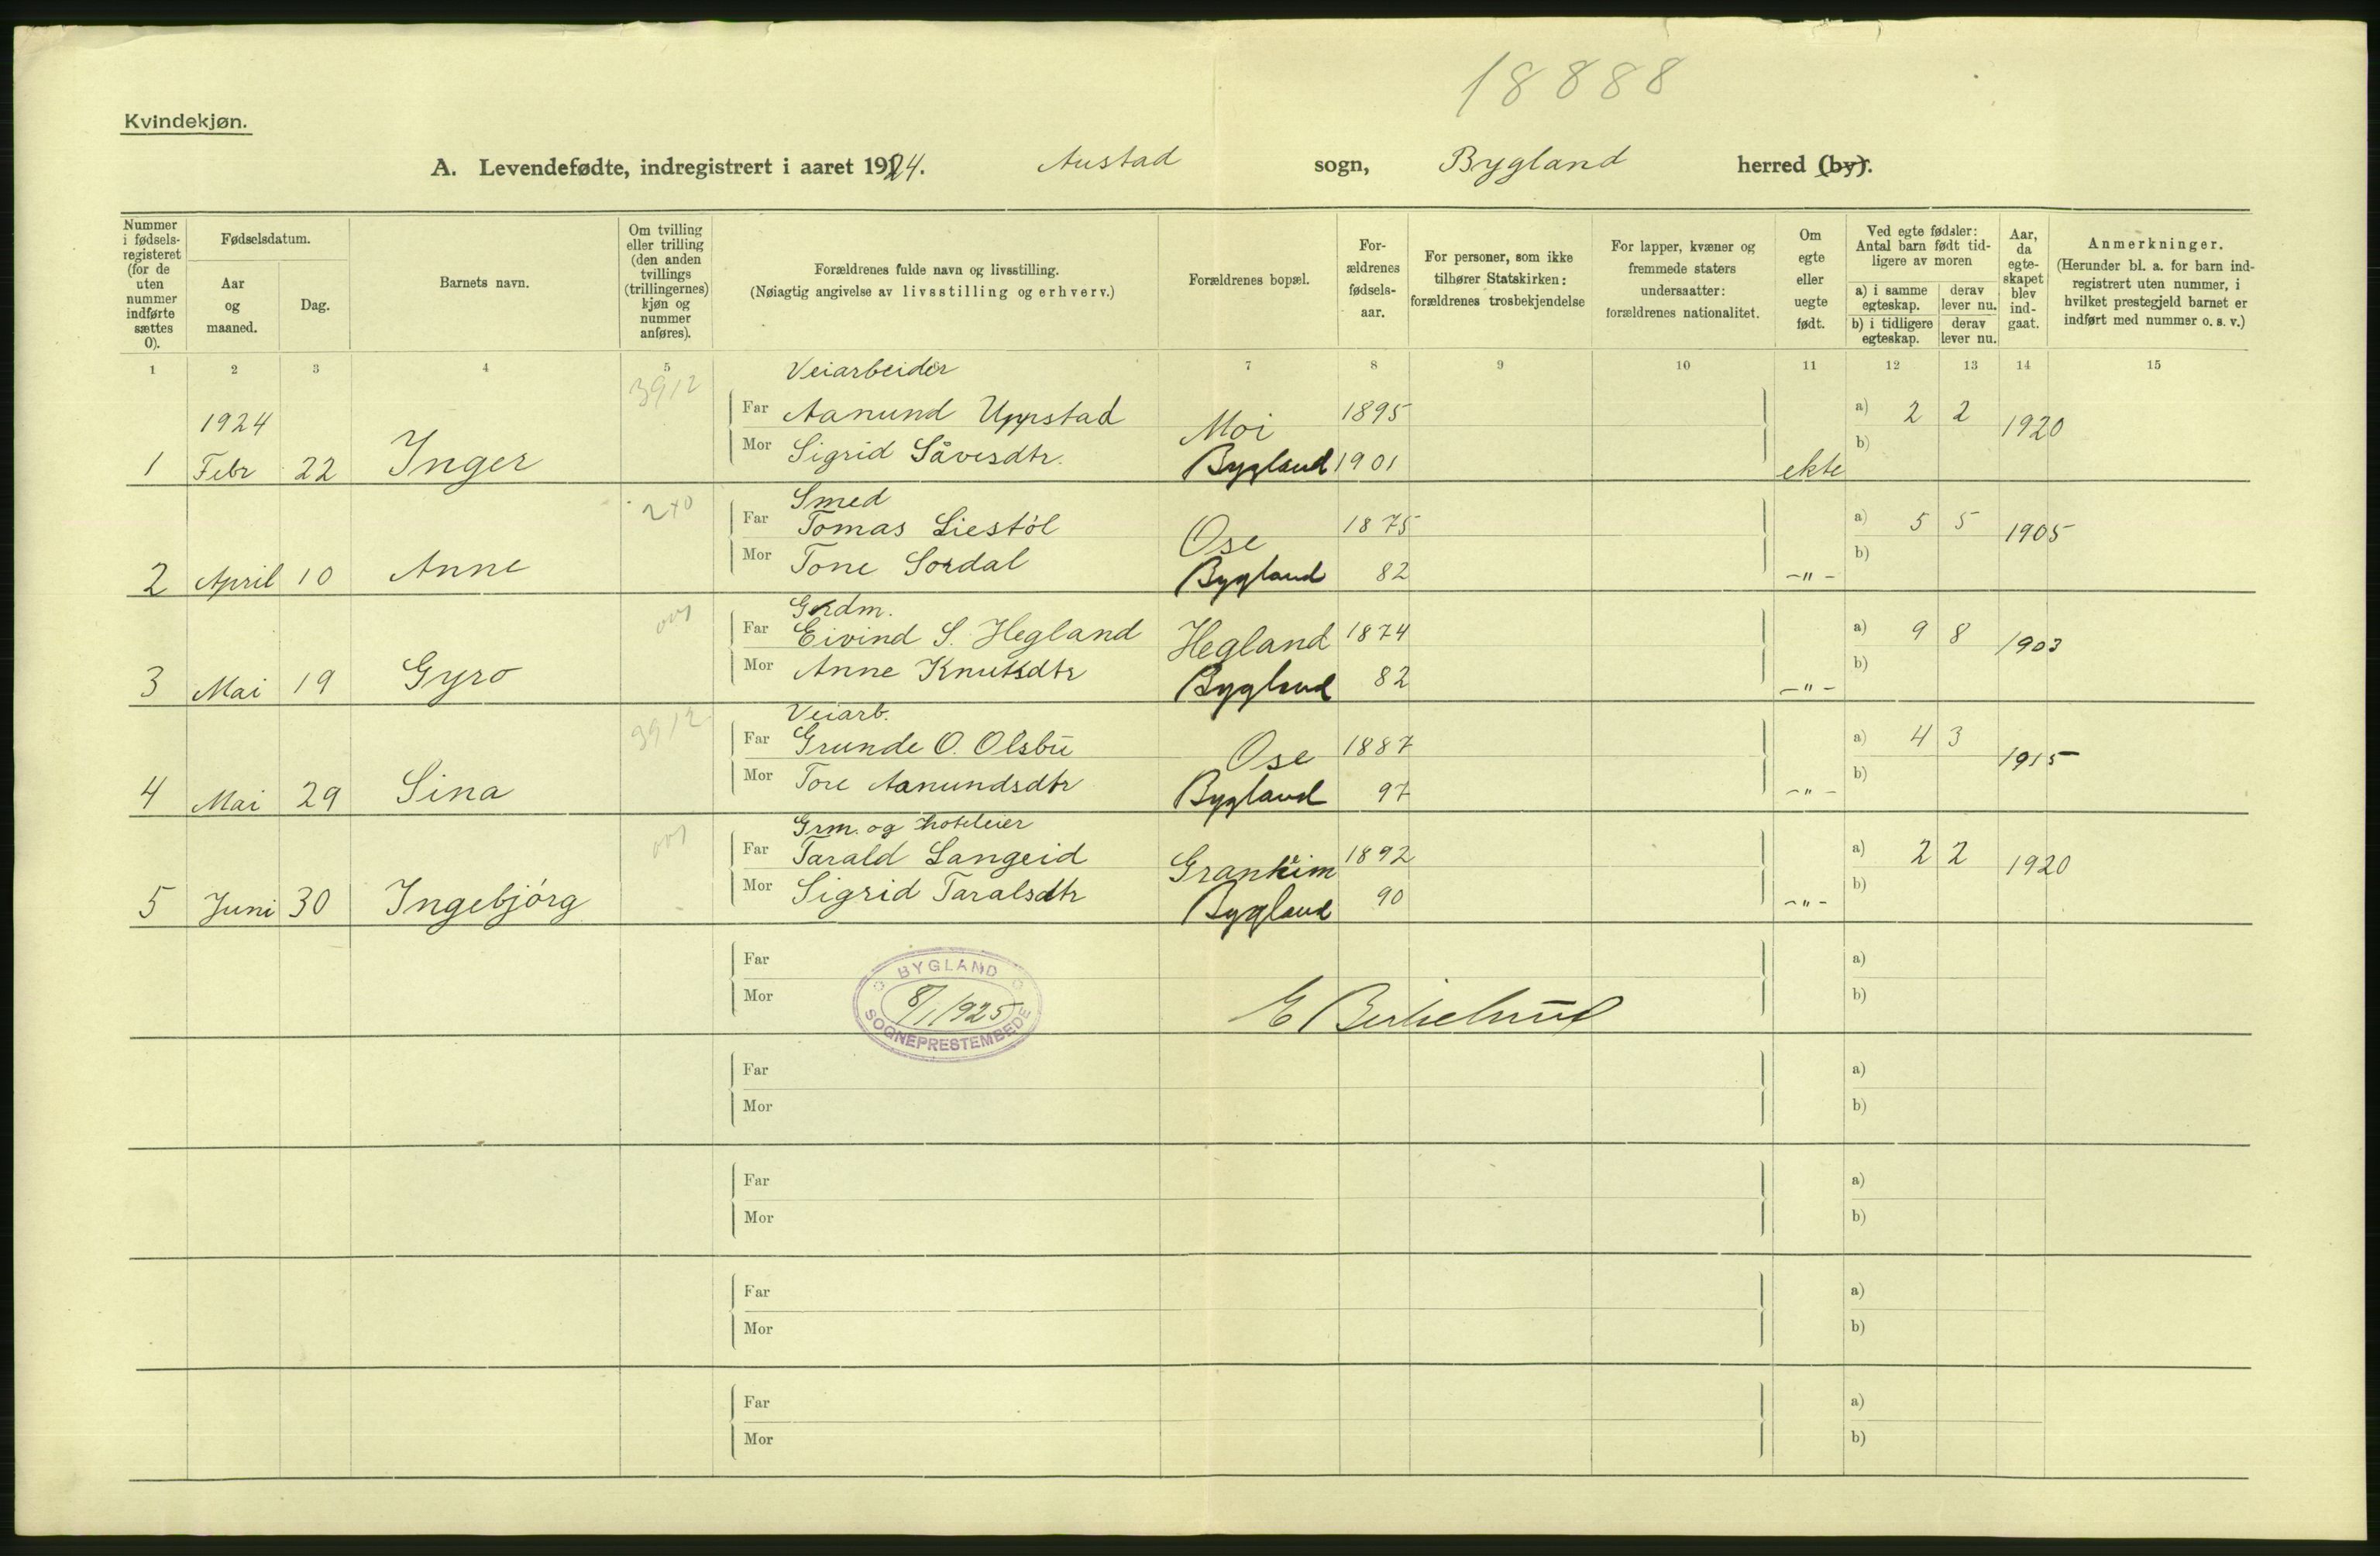 18888
Kvindekjøn.
A. Levendefødte, indregistrert i aaret 1924. Austad sogn, Bygland herred (by).
Nummer i fødsels-registeret (for de uten nummer indførte sættes 0).
Fødselsdatum.
Aar og maaned.
Dag.
Barnets navn.
Om tvilling eller trilling (den anden tvillings (trillingernes) kjøn og nummer anføres).
Forældrenes fulde navn og livsstilling.
(Nøiagtig angivelse av livsstilling og erhverv.)
Forældrenes bopæl.
For-ældrenes fødsels-aar.
For personer, som ikke tilhører Statskirken: forældrenes trosbekjendelse
For lapper, kvæner og fremmede staters undersaatter: forældrenes nationalitet.
Om egte eller uegte født.
Ved egte fødsler: Antal barn født tid-ligere av moren
a) i samme egteskap. derav lever nu.
b) i tidligere egteskap. derav lever nu.
Aar, da egte-skapet blev ind-gaat.
Anmerkninger.
(Herunder bl. a. for barn ind-registrert uten nummer, i hvilket prestegjeld barnet er indført med nummer o. s. v.)
1 2 3 4 5 7 8 9 10 11 12 13 14 15
3912 Veiarbeider
1924 Far Aanund Uppstad Moi 1895 a) 2 2 1920
1 Febr 22 Inger Mor Sigrid Såvesdtr. Bygland 1901 ekte b)
240 Smed
Far Tomas Liestöl Ose 1875 a) 5 5 1905
2 April 10 Anne Mor Tone Sordal Bygland 82 -"- b)
Grdm.
Far Eivind S. Hegland Hegland 1874 a) 9 8 1903
3 Mai 19 Gyro Mor Anne Knutsdtr Bygland 82 -"- b)
3912 Veiarb.
Far Grunde O. Olsbu Ose 1887 a) 4 3 1915
4 Mai 29 Sina Mor Tore Aanundsdtr Bygland 97 -"- b)
Grm. og hoteleier
Far Tarald Langeid Granheim 1892 a) 2 2 1920
5 Juni 30 Ingebjörg Mor Sigrid Taralsdtr Bygland 90 -"- b)
Far a)
Mor b)
BYGLAND
8/1 1925
SOGNEPRESTEMBEDE
Far a)
Mor b)
Far a)
Mor b)
Far a)
Mor b)
Far a)
Mor b)